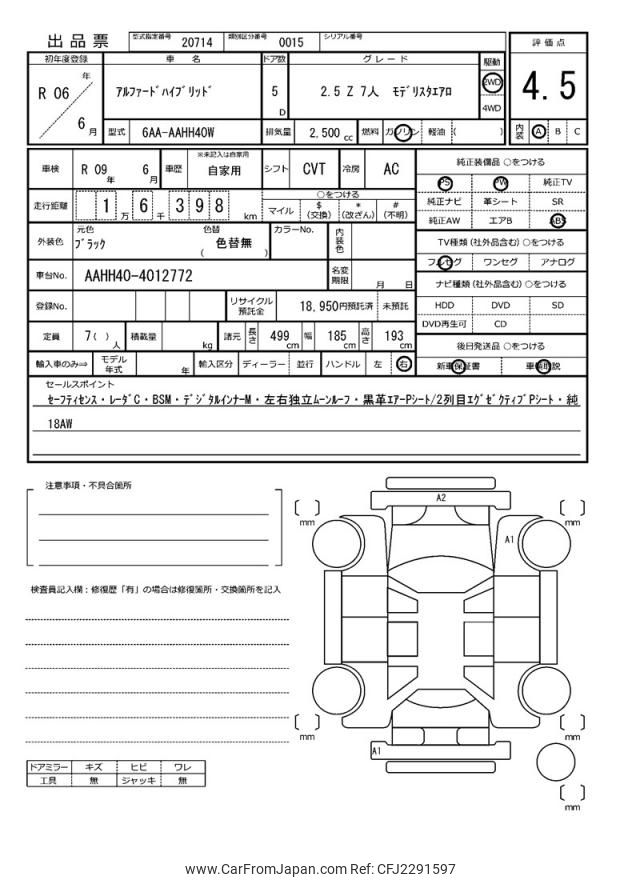 出品票 型式指定番号 20714 類別区分番号 0015 シリアル番号
評価点
4.5
内装 A B C
初年度登録 車名 ドア数 グレード 駆動
R 06 年 6 月 ｱﾙﾌｧｰﾄﾞﾊｲﾌﾞﾘｯﾄﾞ 5 D 2.5 Z 7人 ﾓﾃﾞﾘｽﾀｴｱﾛ 2WD
4WD
型式 6AA-AAHH40W 排気量 2,500 cc 燃料 ガソリン 軽油 ( )
車検 R 09 年 6 月 車歴 ※未記入は自家用 自家用 シフト CVT 冷房 AC
走行距離 1 万 6 千 3 9 8 km
○をつける
マイル $ (交換) * (改ざん) # (不明)
外装色 元色 ﾌﾞﾗｯｸ 色替 ( 色替無 ) カラーNo. 内装色
車台No. AAHH40-4012772 名変期限 月 日
登録No. リサイクル預託金 18,950円預託済 未預託
定員 7( ) 人 積載量 kg 諸元 長さ 499 cm 幅 185 cm 高さ 193 cm
輸入車のみ⇒ モデル年式 年 輸入区分 ディーラー 並行 ハンドル 左 右
純正装備品 ○をつける
PS PW 純正TV
純正ナビ 革シート SR
純正AW エアB ABS
TV種類 (社外品含む) ○をつける
フルセグ ワンセグ アナログ
ナビ種類 (社外品含む) ○をつける
HDD DVD SD
DVD再生可 CD
後日発送品 ○をつける
新車保証書 車輌取説
セールスポイント
ｾｰﾌﾃｨｾﾝｽ・ﾚｰﾀﾞC・BSM・ﾃﾞｼﾞﾀﾙｲﾝﾅｰM・左右独立ﾑｰﾝﾙｰﾌ・黒革ｴｱｰPｼｰﾄ/2列目ｴｸﾞｾﾞｸﾃｨﾌﾞPｼｰﾄ・純
18AW
注意事項・不具合箇所
検査員記入欄：修復歴「有」の場合は修復箇所・交換箇所を記入
ドアミラー キズ ヒビ ワレ
工具 無 ジャッキ 無
A2
mm
mm
A1
mm
mm
A1
mm
www.CarFromJapan.com Ref: CFJ2291597